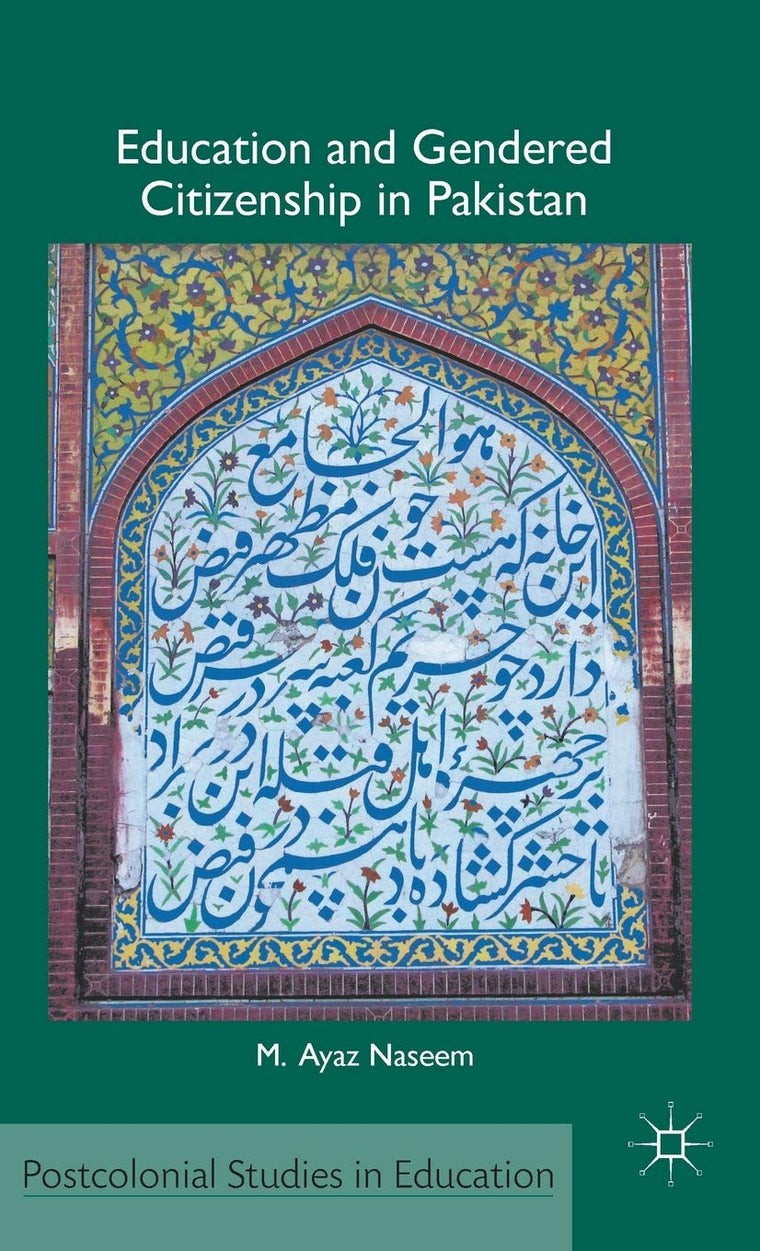 Education and Gendered
Citizenship in Pakistan
هوالجامع
این خانه که هست چون فلک مظهر فیض
دارد چو حریم کعبه در سر فیض
بر چهرهٔ اهل قبله این در
تا حشر گشاده باد همچون در فیض
M. Ayaz Naseem
Postcolonial Studies in Education